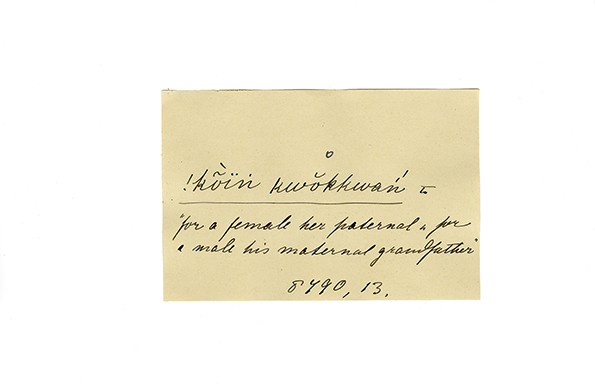 !kȭïṅ kwŏkkwań I
"for a female her paternal & for
a male his maternal grandfather"
8790, 13.